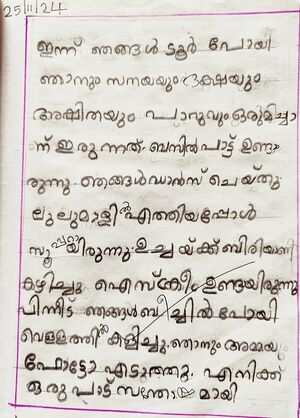 25/11/24
ഇന്ന് ഞങ്ങൾ ടൂർ പോയി
ഞാനും സനയയും ദക്ഷയും
അഷിതയും പാറുവും ഒരുമിച്ചാ
ന് ഇരുന്നത്. ബസിൽ പാട്ട് ഉണ്ടാ
രുന്നു. ഞങ്ങൾ ഡാൻസ് ചെയ്തു
ലുലുമാളിൽ എത്തിയപ്പോൾ
സൂപ്പറായിരുന്നു. ഉച്ചയ്ക്ക് ബിരിയാണി
കഴിച്ചു. ഐസ്ക്രീം ഉണ്ടയിരുന്നു
പിന്നീട് ഞങ്ങൾ ബീച്ചിൽ പോയി
വെള്ളത്തിൽ കളിച്ചു. ഞാനും അമ്മയും
ഫോട്ടോ എടുത്തു. എനിക്ക്
ഒരുപാട് സന്തോഷമായി